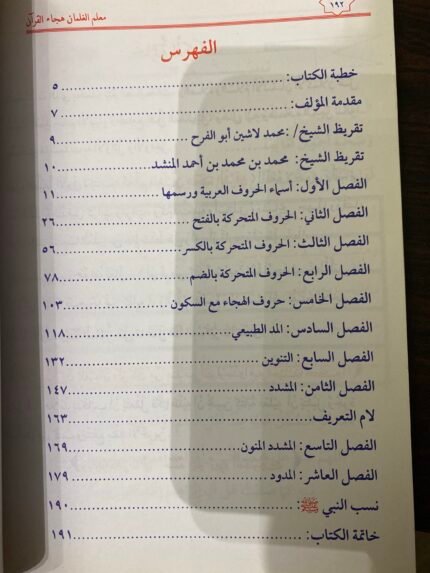 ١٩٢
معلم الغلمان هجاء القرآن
الفهرس
خطبة الكتاب: ٥
مقدمة المؤلف: ٧
تقريظ الشيخ/ :محمد لاشين أبو الفرح ٩
تقريظ الشيخ: محمد بن محمد بن أحمد المنشد ١٠
الفصل الأول: أسماء الحروف العربية ورسمها ١١
الفصل الثاني: الحروف المتحركة بالفتح ٢٦
الفصل الثالث: الحروف المتحركة بالكسر ٥٦
الفصل الرابع: الحروف المتحركة بالضم ٧٨
الفصل الخامس: حروف الهجاء مع السكون ١٠٣
الفصل السادس: المد الطبيعي ١١٨
الفصل السابع: التنوين ١٣٢
الفصل الثامن: المشدد ١٤٧
لام التعريف ١٦٣
الفصل التاسع: المشدد المنون ١٦٩
الفصل العاشر: المدود ١٧٩
نسب النبي ﷺ: ١٩٠
خاتمة الكتاب: ١٩١